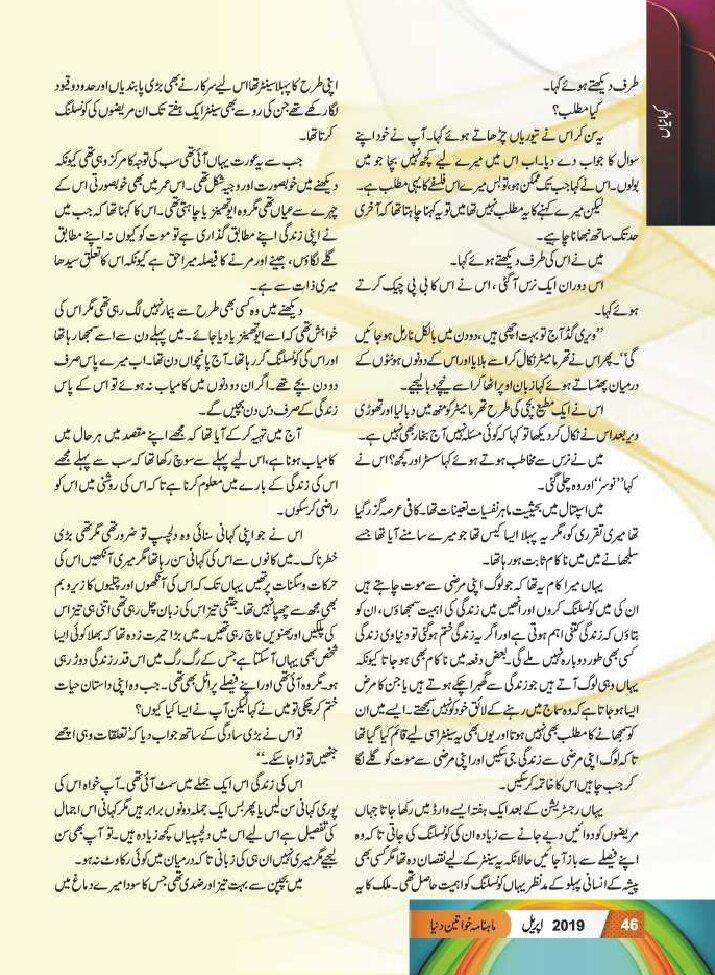 طرف دیکھتے ہوئے کہا۔
کیا مطلب؟
یہ سن کر اس نے تیوریاں چڑھاتے ہوئے کہا۔ آپ نے خود اپنے
سوال کا جواب دے دیا۔ اب اس میں میرے لیے کچھ نہیں بچا جو میں
بولوں۔ اس نے کہا جب تک ممکن ہو، تو بس میرے اس فلسفے کا یہی مطلب ہے۔
لیکن میرے کہنے کا یہ مطلب نہیں تھا میں تو یہ کہنا چاہتا تھا کہ آخری
حد تک ساتھ نبھانا چاہیے۔
میں نے اس کی طرف دیکھتے ہوئے کہا۔
اس دوران ایک نرس آگئی، اس نے اس کا بی پی چیک کرتے
ہوئے کہا۔
’’ویری گڈ آج تو بہت اچھی ہیں، دو دن میں بالکل نارمل ہو جائیں
گی‘‘۔ پھر اس نے تھرمامیٹر نکال کر اسے ہلایا اور اس کے دونوں ہونٹوں کے
درمیان پھنساتے ہوئے کہا زبان اوپر اٹھا کر اسے نیچے دبا لیجیے۔
اس نے ایک مطیع بچی کی طرح تھرمامیٹر کو منھ میں دبا لیا اور تھوڑی
دیر بعد اس نے نکال کر دیکھا تو کہا کہ کوئی مسئلہ نہیں آج بخار بھی نہیں ہے۔
میں نے نرس سے مخاطب ہوتے ہوئے کہا سسٹر اور کچھ؟ اس نے
کہا ’’نو سر‘‘ اور وہ چلی گئی۔
میں اسپتال میں بحیثیت ماہر نفسیات تعینات تھا۔ کافی عرصہ گزر گیا
تھا میری تقرری کو، مگر یہ پہلا ایسا کیس تھا جو میرے سامنے آیا تھا جسے
سلجھانے میں میں ناکام ثابت ہو رہا تھا۔
یہاں میرا کام یہ تھا کہ جو لوگ اپنی مرضی سے موت چاہتے ہیں
ان کی میں کونسلنگ کروں اور انھیں میں زندگی کی اہمیت سمجھاؤں، ان کو
بتاؤں کہ زندگی کتنی اہم ہوتی ہے اور اگر یہ زندگی ختم ہو گئی تو دنیاوی زندگی
کسی بھی طور دوبارہ نہیں ملے گی۔ بعض دفعہ میں ناکام بھی ہو جاتا کیونکہ
یہاں وہی لوگ آتے ہیں جو زندگی سے گھبرا چکے ہوتے ہیں یا جن کا مرض
ایسا ہو جاتا ہے کہ وہ سماج میں رہنے کے لائق خود کو نہیں سمجھتے۔ ایسے میں ان
کو سمجھانے کا مطلب بھی نہیں ہوتا اور یوں بھی یہ سینٹر اسی لیے قائم کیا گیا تھا
تاکہ لوگ اپنی مرضی سے زندگی جی سکیں اور اپنی مرضی سے موت کو گلے لگا
کر جب چاہیں اس کا خاتمہ کر سکیں۔
یہاں رجسٹریشن کے بعد ایک ہفتہ ایسے وارڈ میں رکھا جاتا جہاں
مریضوں کو دوائیں دیے جانے سے زیادہ ان کی کونسلنگ کی جاتی تاکہ وہ
اپنے فیصلے سے باز آجائیں حالانکہ یہ سینٹر کے لیے نقصان دہ تھا مگر کسی بھی
پیشہ کے انسانی پہلو کے مدنظر یہاں کونسلنگ کو اہمیت حاصل تھی۔ ملک کا یہ
اپنی طرح کا پہلا سینٹر تھا اس لیے سرکار نے بھی بڑی پابندیاں اور حدود و قیود
لگا رکھے تھے جن کی رو سے بھی سینٹر ایک ہفتے تک ان مریضوں کی کونسلنگ
کرتا تھا۔
جب سے یہ عورت یہاں آئی تھی سب کی توجہ کا مرکز وہی تھی کیونکہ
دیکھنے میں خوبصورت اور وجیہ شکل تھی۔ اس عمر میں بھی خوبصورتی اس کے
چہرے سے عیاں تھی مگر وہ ایوتھینزیا چاہتی تھی۔ اس کا کہنا تھا کہ جب میں
نے اپنی زندگی اپنے مطابق گذاری ہے تو موت کو کیوں نہ اپنے مطابق
گلے لگاؤں، جینے اور مرنے کا فیصلہ میرا حق ہے کیونکہ اس کا تعلق سیدھا
میری ذات سے ہے۔
دیکھنے میں وہ کسی بھی طرح سے بیمار نہیں لگ رہی تھی مگر اس کی
خواہش تھی کہ اسے ایوتھینزیا دیا جائے۔ میں پہلے دن سے اسے سمجھا رہا تھا
اور اس کی کونسلنگ کر رہا تھا۔ آج پانچواں دن تھا۔ اب میرے پاس صرف
دو دن بچے تھے۔ اگر ان دو دنوں میں کامیاب نہ ہوئے تو اس کے پاس
زندگی کے صرف دس دن بچیں گے۔
آج میں تہیہ کر کے آیا تھا کہ مجھے اپنے مقصد میں ہر حال میں
کامیاب ہونا ہے، اس لیے پہلے سے سوچ رکھا تھا کہ سب سے پہلے مجھے
اس کی زندگی کے بارے میں معلوم کرنا ہے تاکہ اس کی روشنی میں اس کو
راضی کر سکوں۔
اس نے جو اپنی کہانی سنائی وہ دلچسپ تو ضرور تھی مگر تھی بڑی
خطرناک۔ میں کانوں سے اس کی کہانی سن رہا تھا مگر میری آنکھیں اس کی
حرکات و سکنات پر تھیں یہاں تک کہ اس کی آنکھوں اور پتلیوں کا زیر و بم
بھی مجھ سے چھپا نہیں تھا۔ جتنی تیز اس کی زبان چل رہی تھی اتنی ہی تیز اس
کی پلکیں اور بھنویں ناچ رہی تھیں۔ میں بڑا حیرت زدہ تھا کہ بھلا کوئی ایسا
شخص بھی یہاں آ سکتا ہے جس کے رگ رگ میں اس قدر زندگی دوڑ رہی
ہو۔ مگر وہ آئی تھی اور اپنے فیصلے پر اٹل بھی تھی۔ جب وہ اپنی داستان حیات
ختم کر چکی تو میں نے کہا لیکن آپ نے ایسا کیا کیوں؟
تو اس نے بڑی سادگی کے ساتھ جواب دیا کہ ’تعلقات وہی اچھے
جنھیں توڑا جا سکے۔‘‘
اس کی زندگی اس ایک جملے میں سمٹ آئی تھی۔ آپ خواہ اس کی
پوری کہانی سن لیں یا پھر بس ایک جملہ دونوں برابر ہیں مگر کہانی اس اجمال
کی تفصیل ہے اس لیے اس میں دلچسپیاں کچھ زیادہ ہیں۔ تو آپ بھی سن
لیجیے مگر میری نہیں ان ہی کی زبانی تاکہ درمیان میں کوئی رکاوٹ نہ ہو۔
میں بچپن سے بہت تیز اور ضدی تھی جس کا سودا میرے دماغ میں
ماہنامہ خواتین دنیا اپریل 2019 46